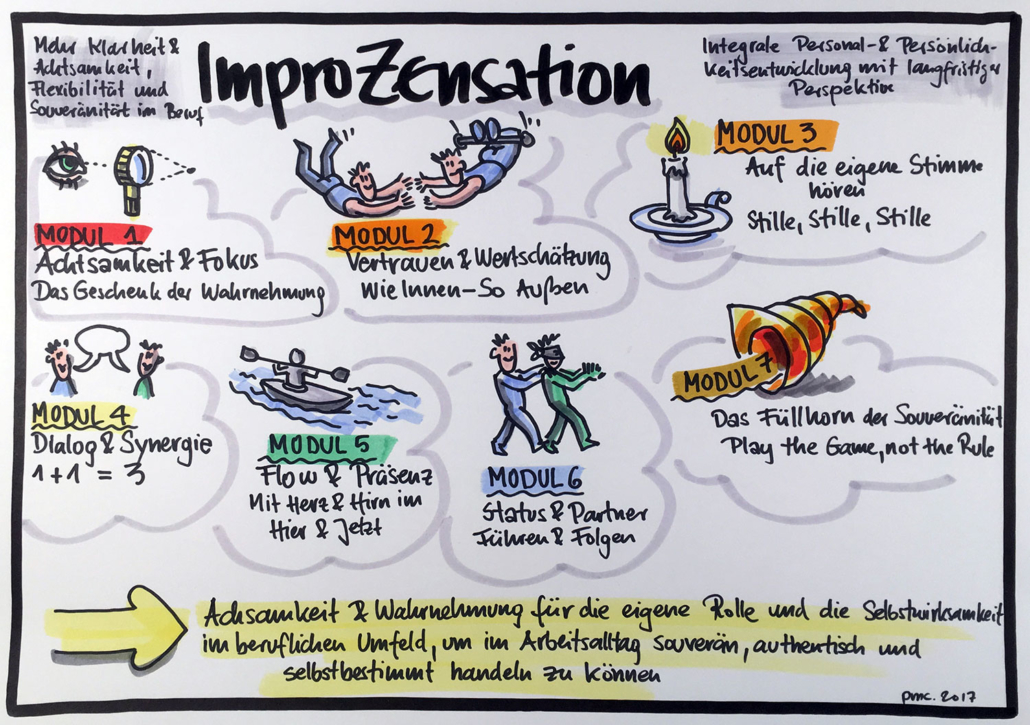 Mehr Klarheit &
Achtsamkeit,
Flexibilität und
Souveränität im Beruf
ImproZensation
Integrale Personal- & Persönlich-
keitsentwicklung mit langfristiger
Perspektive
MODUL 1
Achtsamkeit & Fokus
Das Geschenk der Wahrnehmung
MODUL 2
Vertrauen & Wertschätzung
Wie Innen – So Außen
MODUL 3
Auf die eigene Stimme
hören
Stille, Stille, Stille
MODUL 4
Dialog & Synergie
1+1 = 3
MODUL 5
Flow & Präsenz
Mit Herz & Hirn im
Hier & Jetzt
MODUL 6
Status & Partner
Führen & Folgen
MODUL 7
Das Füllhorn der Souveränität
Play the Game, not the Rule
Achsamkeit & Wahrnehmung für die eigene Rolle und die Selbstwirksamkeit
im beruflichen Umfeld, um im Arbeitsalltag souverän, authentisch und
selbstbestimmt handeln zu können
pmc. 2017